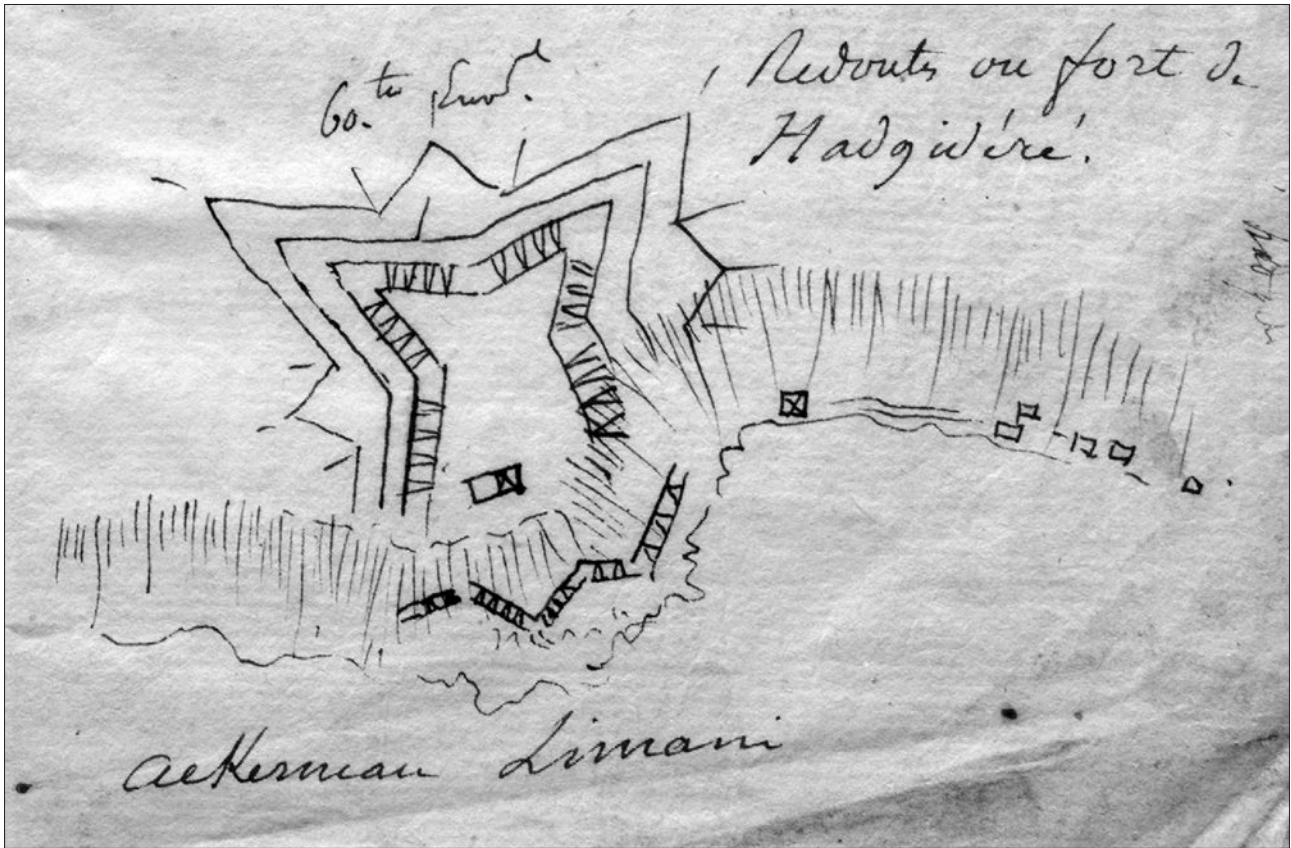 Redoute ou fort de
Hadgidéré.
60.
Ackerman Limani